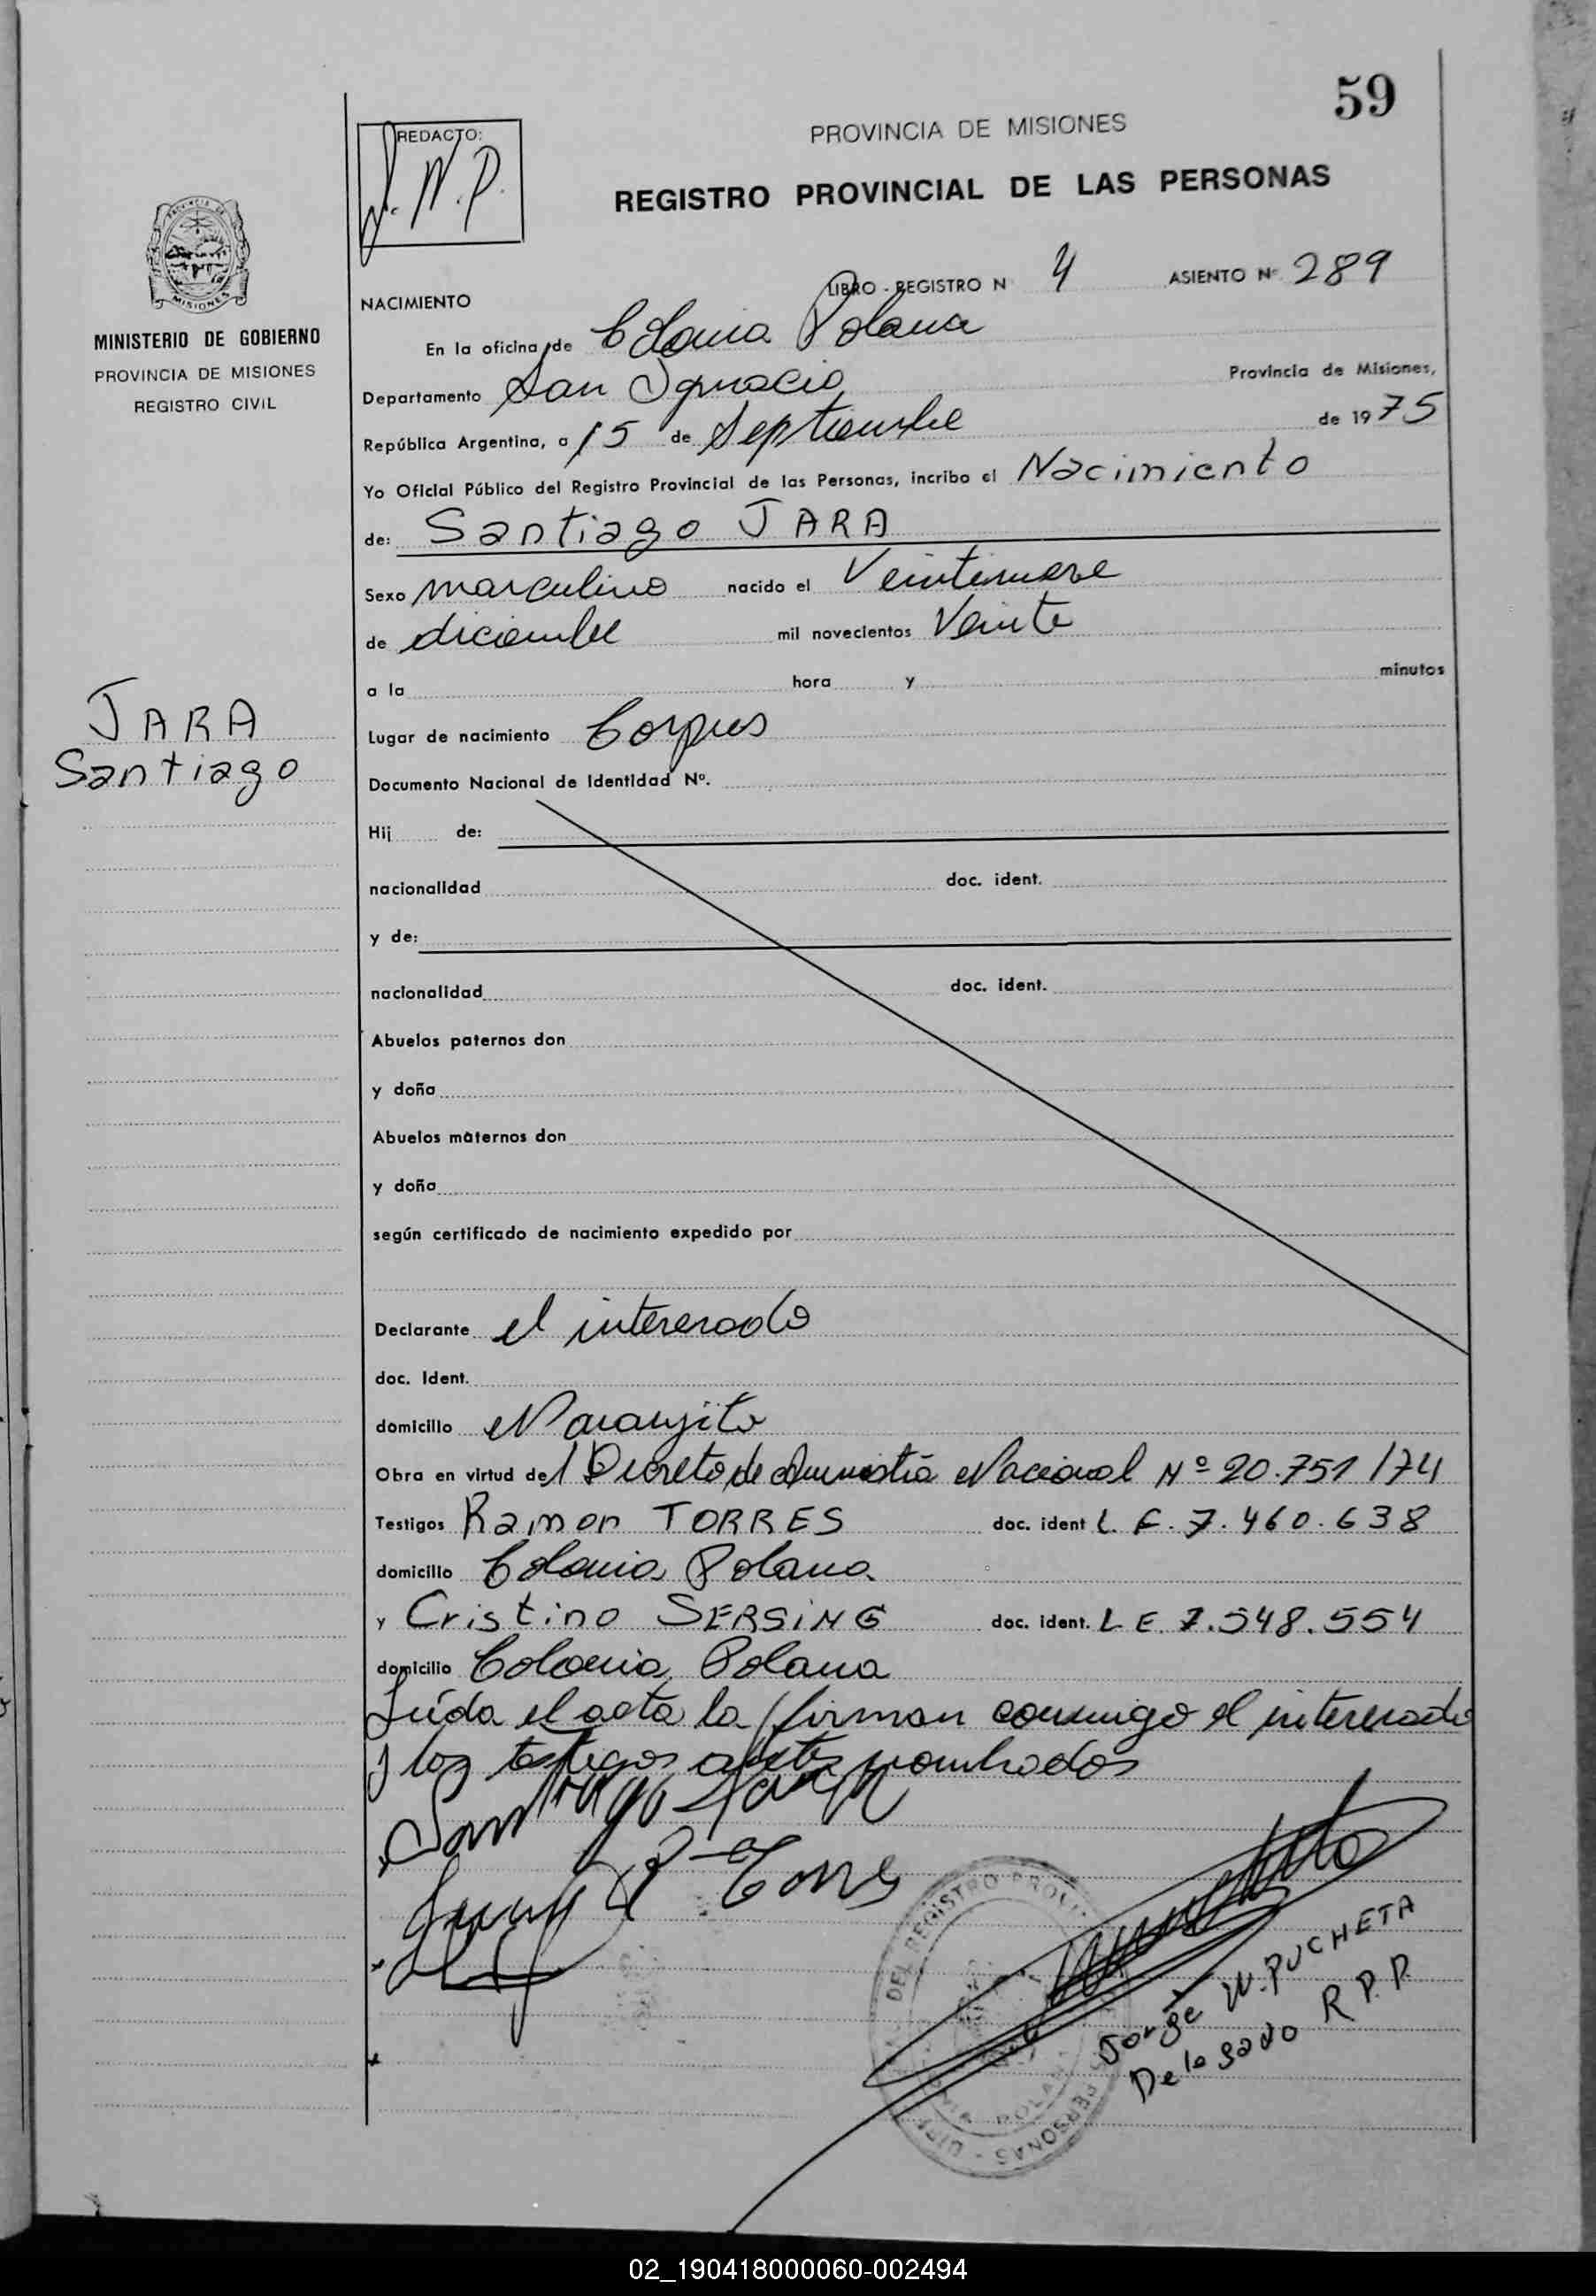 59
PROVINCIA DE MISIONES
REGISTRO PROVINCIAL DE LAS PERSONAS
REDACTO:
J.N.P.
MISIONES
MINISTERIO DE GOBIERNO
PROVINCIA DE MISIONES
REGISTRO CIVIL
LIBRO - REGISTRO N 4 ASIENTO Nº 289
NACIMIENTO
En la oficina de Colonia Polana
Departamento San Ignacio Provincia de Misiones,
República Argentina, a 15 de Septiembre de 1975
Yo Oficial Público del Registro Provincial de las Personas, incribo el Nacimiento
de: Santiago JARA
Sexo masculino nacido el Veintinueve
de diciembre mil novecientos Veinte
a la hora y minutos
JARA
Santiago
Lugar de nacimiento Corpus
Documento Nacional de Identidad Nº.
Hij de:
nacionalidad doc. ident.
y de:
nacionalidad doc. ident.
Abuelos paternos don
y doña
Abuelos maternos don
y doña
según certificado de nacimiento expedido por
Declarante el interesado
doc. Ident.
domicilio Naranjito
Obra en virtud del Decreto de Amnistía Nacional Nº 20.751/74
Testigos Ramon TORRES doc. ident L. E. 7.460.638
domicilio Colonia Polana
y Cristino SERSING doc. ident. L E. 7.548.554
domicilio Colonia Polana
Leída el acta la firman conmigo el interesado
y los testigos antes nombrados
Santiago Jara
R Torres
DEL REGISTRO PROV
PERSONAS
Jorge W. PUCHETA
Delegado R.P.P.
02_190418000060-002494